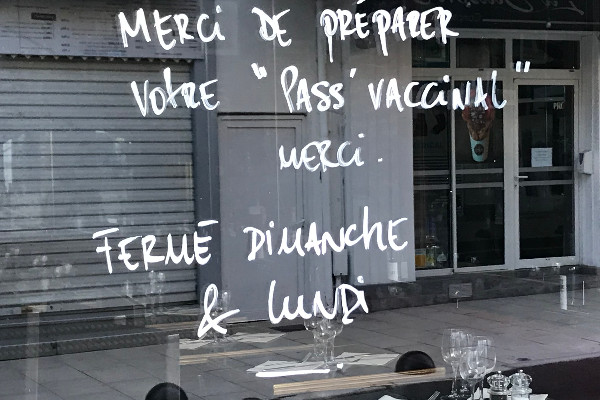 MERCi DE PRÉPARER
VOTRE "PASS' VACCiNAL"
MERCi.
FERMÉ DIMANCHE
& LUNDi